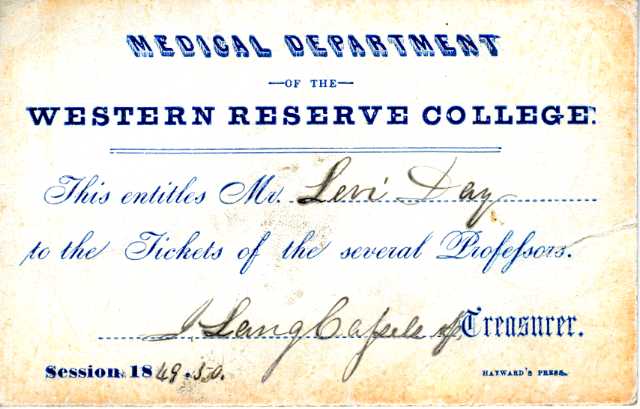 MEDICAL DEPARTMENT
—OF THE—
WESTERN RESERVE COLLEGE.
This entitles Mr. Levi Day
to the Tickets of the several Profeſsors.
J Lang Caſsels Treasurer.
Session 1849-50.
HAYWARD'S PRESS.